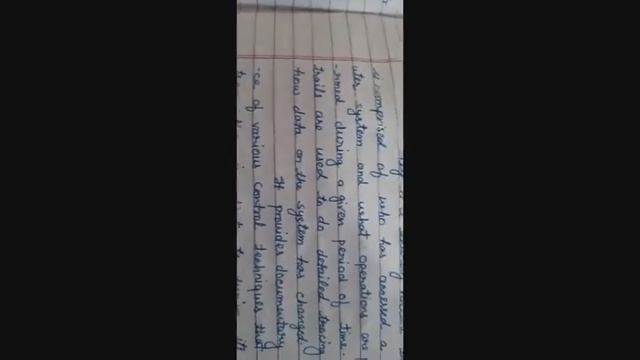 is comprised of who has accessed a
uter system and what operations are
-rmed during a given period of time.
trails are used to do detailed tracing
how data on the system has changed.
It provides documentary
-ce of various control techniques that